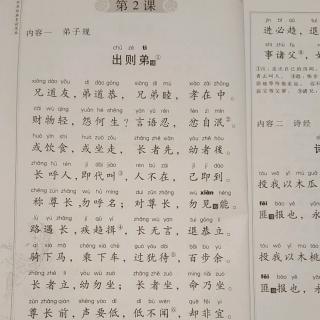 第2课
内容一 弟子规
chū zé tì
出则弟①
xiōng dào yǒu dì dào gōng xiōng dì mù xiào zài zhōng
兄道友，弟道恭，兄弟睦，孝在中。
cái wù qīng yuàn hé shēng yán yǔ rěn fèn zì mǐn
财物轻，怨何生？言语忍，忿自泯。
huò yǐn shí huò zuò zǒu zhǎng zhě xiān yòu zhě hòu
或饮食，或坐走，长者先，幼者后。
zhǎng hū rén jí dài jiào rén bú zài jǐ jí dào
长呼人，即代叫，人不在，己即到。
chēng zūn zhǎng wù hū míng duì zūn zhǎng wù xiàn néng
称尊长，勿呼名；对尊长，勿见能。
lù yù zhǎng jí qū yī zhǎng wú yán tuì gōng lì
路遇长，疾趋揖，长无言，退恭立。
qí xià mǎ chéng xià chē guò yóu dài bǎi bù yú
骑下马，乘下车，过犹待，百步余。
zhǎng zhě lì yòu wù zuò zhǎng zhě zuò mìng nǎi zuò
长者立，幼勿坐；长者坐，命乃坐。
zūn zhǎng qián shēng yào dī dī bù wén què fēi yí
尊长前，声要低，低不闻，却非宜。
jìn bì qū tuì
进必趋，退
shì zhū fù
事诸父，
内容二 诗经
tóu wǒ yǐ mù guā
投我以木瓜
匪报也，永
投我以木桃
匪报也，永
投我以木
匪报也，